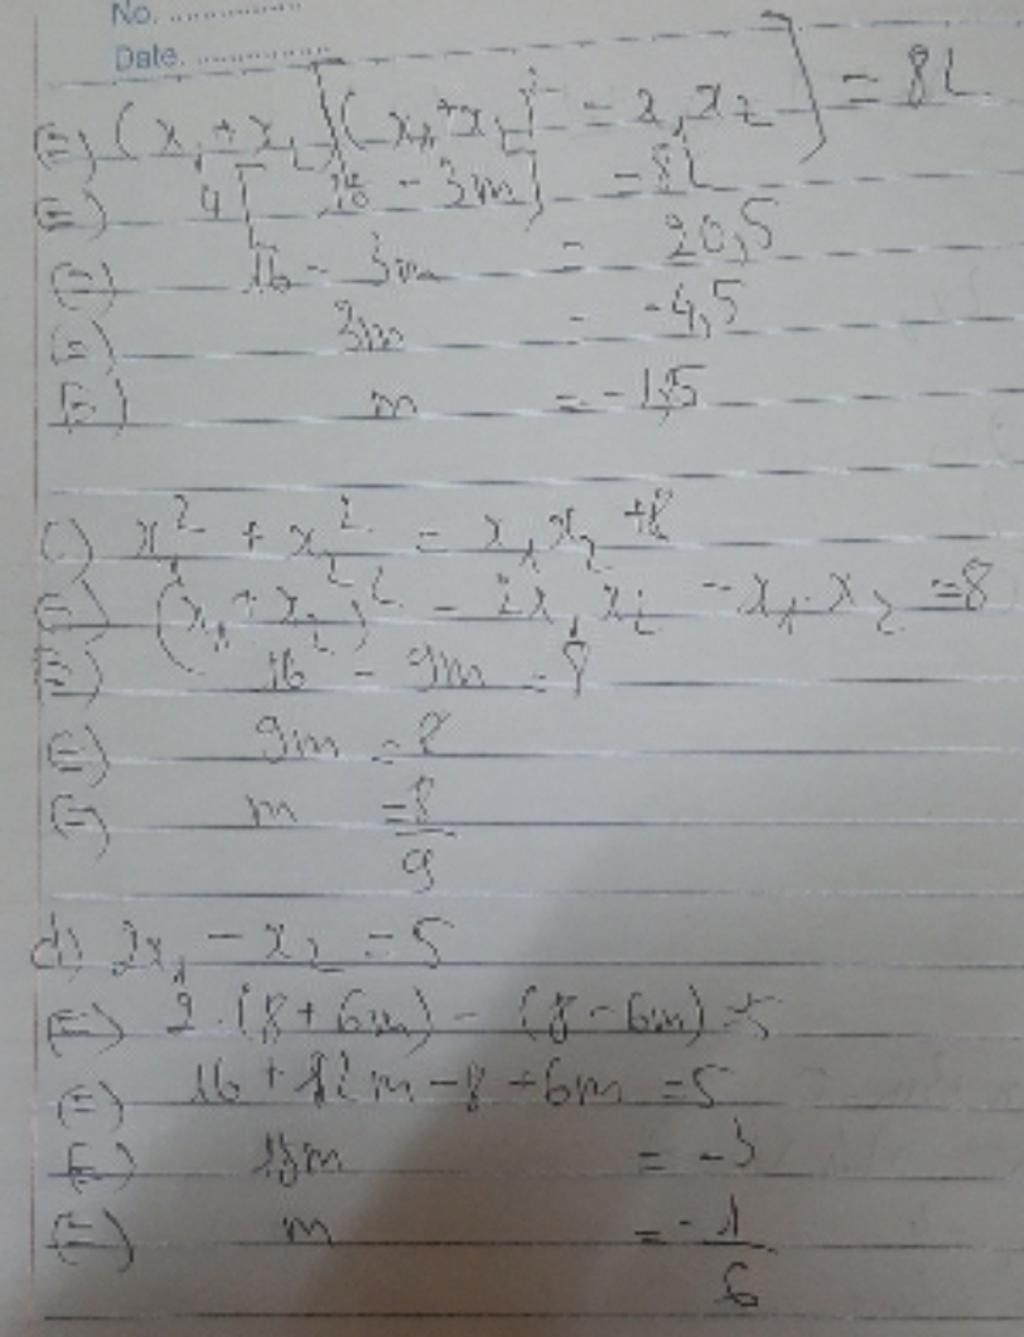 No. ..................
Date. ..................
⇔ (x₁ + x₂) [(x₁ + x₂)² - = x₁ x₂] = 82
⇔ 4 [16 - 3m] = 82
⇔ 16 - 3m = 20,5
⇔ 3m = -4,5
⇔ m = -1,5
c) x₁² + x₂² = x₁ x₂ + 8
⇔ (x₁ + x₂)² - 2x₁ x₂ - x₁ . x₂ = 8
⇔ 16 - 9m = 8
⇔ 9m = 8
⇔ m = 8/9
d) 2x₁ - x₂ = 5
⇔ 2 . (8 + 6m) - (8 - 6m) = 5
⇔ 16 + 12m - 8 + 6m = 5
⇔ 18m = -3
⇔ m = -1/6